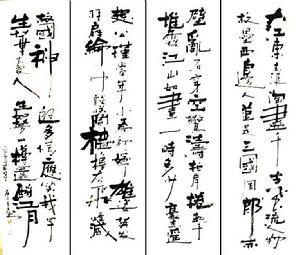 大江東去浪淘盡千古風流人物
故壘西邊人道是三國周郎赤
壁亂石穿空驚濤拍岸捲起千
堆雪江山如畫一時多少豪傑
想公瑾當年小喬初嫁雄姿英發
羽扇綸巾談笑間檣櫓灰飛煙滅
故國神多情應笑我早
生華髮人生夢一樽還酹江月